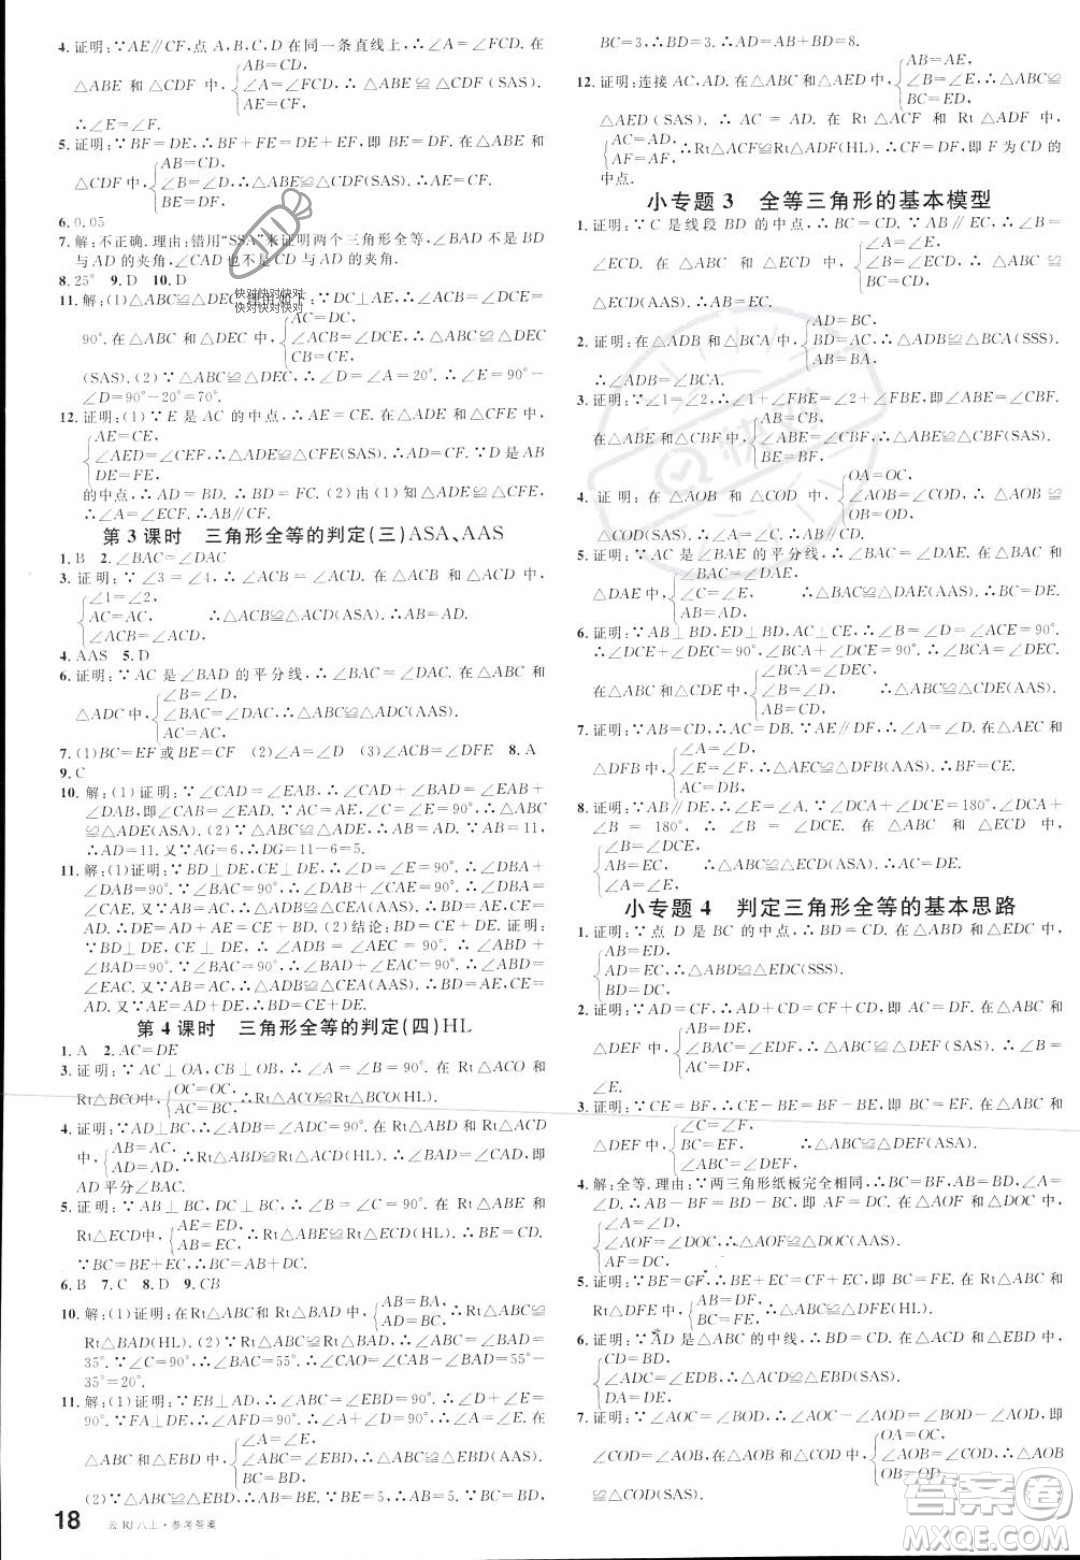 4. 证明:∵AE∥CF,点 A,B,C,D 在同一条直线上,∴∠A=∠FCD. 在
△ABE 和 △CDF 中, { AB=CD, ∠A=∠FCD, AE=CF, ∴△ABE≌△CDF (SAS)
∴∠E=∠F.
5. 证明:∵BF=DE,∴BF+FE=DE+EF,即 BE=DF. 在△ABE 和
△CDF 中, { AB=CD, ∠B=∠D, BE=DF, ∴△ABE≌△CDF(SAS).∴AE=CF.
6. 0.05
7. 解:不正确.理由:错用“SSA”来证明两个三角形全等,∠BAD 不是 BD
与 AD 的夹角,∠CAD 也不是 CD 与 AD 的夹角.
8. 25° 9. D 10. D
11. 解:(1)△ABC≌△DEC,理由如下:∵DC⊥AE,∴∠ACB=∠DCE=
90°.在△ABC 和△DEC 中, { AC=DC, ∠ACB=∠DCE, CB=CE, ∴△ABC≌△DEC
(SAS).(2)∵△ABC≌△DEC,∴∠D=∠A=20°.∴∠E=90°-
∠D=90°-20°=70°.
12. 证明:(1)∵E 是 AC 的中点,∴AE=CE. 在△ADE 和△CFE 中,
{ AE=CE, ∠AED=∠CEF, DE=FE, ∴△ADE≌△CFE(SAS).∴AD=CF.∵D 是 AB
的中点,∴AD=BD.∴BD=CF.(2)由(1)知△ADE≌△CFE,
∴∠A=∠ECF.∴AB∥CF.
第 3 课时 三角形全等的判定(三)ASA、AAS
1. B 2. ∠BAC=∠DAC
3. 证明:∵∠3=∠4,∴∠ACB=∠ACD. 在△ACB 和△ACD 中,
{ ∠1=∠2, AC=AC, ∠ACB=∠ACD, ∴△ACB≌△ACD(ASA).∴AB=AD.
4. AAS 5. D
6. 证明:∵AC 是∠BAD 的平分线,∴∠BAC=∠DAC. 在△ABC 和
△ADC 中, { ∠B=∠D, ∠BAC=∠DAC, AC=AC, ∴△ABC≌△ADC(AAS).
7. (1)BC=EF 或 BE=CF (2)∠A=∠D (3)∠ACB=∠DFE 8. A
9. C
10. 解:(1)证明:∵∠CAD=∠EAB,∴∠CAD+∠BAD=∠EAB+
∠BAD,即∠CAB=∠EAD.∵AC=AE,∠C=∠E,∴△ABC
≌△ADE(ASA).(2)∵△ABC≌△ADE,∴AD=AB.∵AB=11,
∴AD=11.又∵AG=6,∴DG=11-6=5.
11. 解:(1)证明:∵BD⊥DE,CE⊥DE,∴∠D=∠E=90°.∴∠DBA+
∠DAB=90°.∵∠BAC=90°,∴∠DAB+∠CAE=90°.∴∠DBA=
∠CAE.又∵AB=AC,∴△ADB≌△CEA(AAS).∴BD=AE,CE=
AD.∴DE=AD+AE=CE+BD.(2)结论:BD=CE+DE,证明:
∵BD⊥AE,CE⊥AE,∴∠ADB=∠AEC=90°.∴∠ABD+∠BAD
=90°.∵∠BAC=90°,∴∠BAD+∠EAC=90°.∴∠ABD=
∠EAC.又∵AB=AC,∴△ADB≌△CEA(AAS).∴BD=AE,CE=
AD.又∵AE=AD+DE,∴BD=CE+DE.
第 4 课时 三角形全等的判定(四)HL
1. A 2. AC=DE
3. 证明:∵AC⊥OA,CB⊥OB,∴∠A=∠B=90°.在 Rt△ACO 和
Rt△BCO 中, { OC=OC, AC=BC, ∴Rt△ACO≌Rt△BCO(HL).
4. 证明:∵AD⊥BC,∴∠ADB=∠ADC=90°.在 Rt△ABD 和 Rt△ACD
中, { AB=AC, AD=AD, ∴Rt△ABD≌Rt△ACD(HL).∴∠BAD=∠CAD,即
AD 平分∠BAC.
5. 证明:∵AB⊥BC,DC⊥BC,∴∠B=∠C=90°. 在 Rt△ABE 和
Rt△ECD 中, { AE=ED, AB=EC, ∴Rt△ABE≌Rt△ECD(HL).∴BE=CD.
∵BC=BE+EC,∴BC=AB+DC.
6. B 7. C 8. D 9. CB
10. 解:(1)证明:在 Rt△ABC 和 Rt△BAD 中, { AB=BA, AD=BC, ∴Rt△ABC≌
Rt△BAD(HL).(2)∵Rt△ABC≌Rt△BAD,∴∠ABC=∠BAD=
35°.∵∠C=90°,∴∠BAC=55°.∴∠CAO=∠CAB-∠BAD=55°-
35°=20°.
11. 解:(1)证明:∵EB⊥AD,∴∠ABC=∠EBD=90°.∴∠E+∠D=
90°.∵FA⊥DF,∴∠DFA=90°.∴∠A+∠D=90°.∴∠A=∠E.在
△ABC 和△EBD 中, { ∠A=∠E, ∠ABC=∠EBD, BC=BD, ∴△ABC≌△EBD(AAS).
(2)∵△ABC≌△EBD,∴AB=EB.∵BD=BC,
18 云 RJ 八上·参考答案
BC=3,∴BD=3.∴AD=AB+BD=8.
12. 证明:连接 AC,AD. 在△ABC 和△AED 中, { AB=AE, ∠B=∠E, BC=ED, ∴△ABC≌
△AED(SAS).∴AC=AD. 在 Rt△ACF 和 Rt△ADF 中,
{ AC=AD, AF=AF, ∴Rt△ACF≌Rt△ADF(HL).∴CF=DF,即 F 为 CD 的
中点.
小专题 3 全等三角形的基本模型
1. 证明:∵C 是线段 BD 的中点,∴BC=CD.∵AB∥EC,∴∠B=
∠ECD. 在△ABC 和△ECD 中, { ∠A=∠E, ∠B=∠ECD, BC=CD, ∴△ABC≌
△ECD(AAS).∴AB=EC.
2. 证明:在△ADB 和△BCA 中, { AD=BC, BD=AC, AB=BA, ∴△ADB≌△BCA(SSS).
∴∠ADB=∠BCA.
3. 证明:∵∠1=∠2,∴∠1+∠FBE=∠2+∠FBE,即∠ABE=∠CBF.
在△ABE 和△CBF 中, { AB=CB, ∠ABE=∠CBF, BE=BF, ∴△ABE≌△CBF(SAS).
4. 证明:在△AOB 和△COD 中, { OA=OC, ∠AOB=∠COD, OB=OD, ∴△AOB≌
△COD(SAS).∴∠A=∠C.∴AB∥CD.
5. 证明:∵AC 是∠BAE 的平分线,∴∠BAC=∠DAE.在△BAC 和
△DAE 中, { ∠BAC=∠DAE, ∠C=∠E, AB=AD, ∴△BAC≌△DAE(AAS).∴BC=DE.
6. 证明:∵AB⊥BD,ED⊥BD,AC⊥CE,∴∠B=∠D=∠ACE=90°.
∴∠BCA+∠DCE=90°,∠BCA+∠BAC=90°.∴∠BAC=∠DCE.
在△ABC 和△CDE 中, { ∠BCA=∠DEC, ∠B=∠D, ∴△ABC≌△CDE(AAS).
7. 证明:∵AB=CD,∴AC=DB.∵AE∥DF,∴∠A=∠D.在△AEC 和
△DFB 中, { ∠A=∠D, AC=DB, ∴△AEC≌△DFB(AAS).∴BF=CE.
8. 证明:∵AB∥DE,∴∠E=∠A.∵∠ACD+∠DCE=180°,∠ACD+
∠B = 180°, ∴∠B = ∠DCE. 在△ABC 和△ECD 中,
{ AB=EC, ∴△ABC≌△ECD(ASA).∴AC=DE.
小专题 4 判定三角形全等的基本思路
1. 证明:∵点 D 是 BC 的中点,∴BD=DC. 在△ABD 和△EDC 中,
{ AB=ED, AD=EC, BD=DC, ∴△ABD≌△EDC(SSS).
2. 证明:∵AD=CF,∴AD+CD=CF+CD,即 AC=DF.在△ABC 和
△DEF 中, { AB=DE, ∠A=∠EDF, AC=DF, ∴△ABC≌△DEF(SAS).∴∠B=
∠E.
3. 证明:∵CE=BF,∴CE-BE=BF-BE,即 BC=EF.在△ABC 和
△DEF 中, { ∠C=∠F, BC=EF, ∠ABC=∠DEF, ∴△ABC≌△DEF(ASA).
4. 解:全等.理由:∵两三角形纸板完全相同,∴BC=BF,AB=BD,∠A=
∠D.∴AB-BF=BD-BC,即 AF=DC.在△AOF 和△DOC 中,
{ ∠A=∠D, ∠AOF=∠DOC, AF=DC, ∴△AOF≌△DOC(AAS).
5. 证明:∵BE=CF,∴BE+EC=CF+EC,即 BC=FE.在 Rt△ABC 和
Rt△DFE 中, { AB=DF, BC=FE, ∴Rt△ABC≌Rt△DFE(HL).
6. 证明:∵AD 是△ABC 的中线,∴BD=CD.在△ACD 和△EBD 中,
{ CD=BD, DA=DE, ∴△ACD≌△EBD(SAS).
7. 证明:∵∠AOC=∠BOD,∴∠AOC-∠AOD=∠BOD-∠AOD,即
∠COD=∠AOB.在△AOB 和△COD 中, { OA=OC, ∠AOB=∠COD, OB=OD, ∴△AOB
≌△COD(SAS).
快对快对快对
快对快对快对
快对
答案圈
MXQE.COM